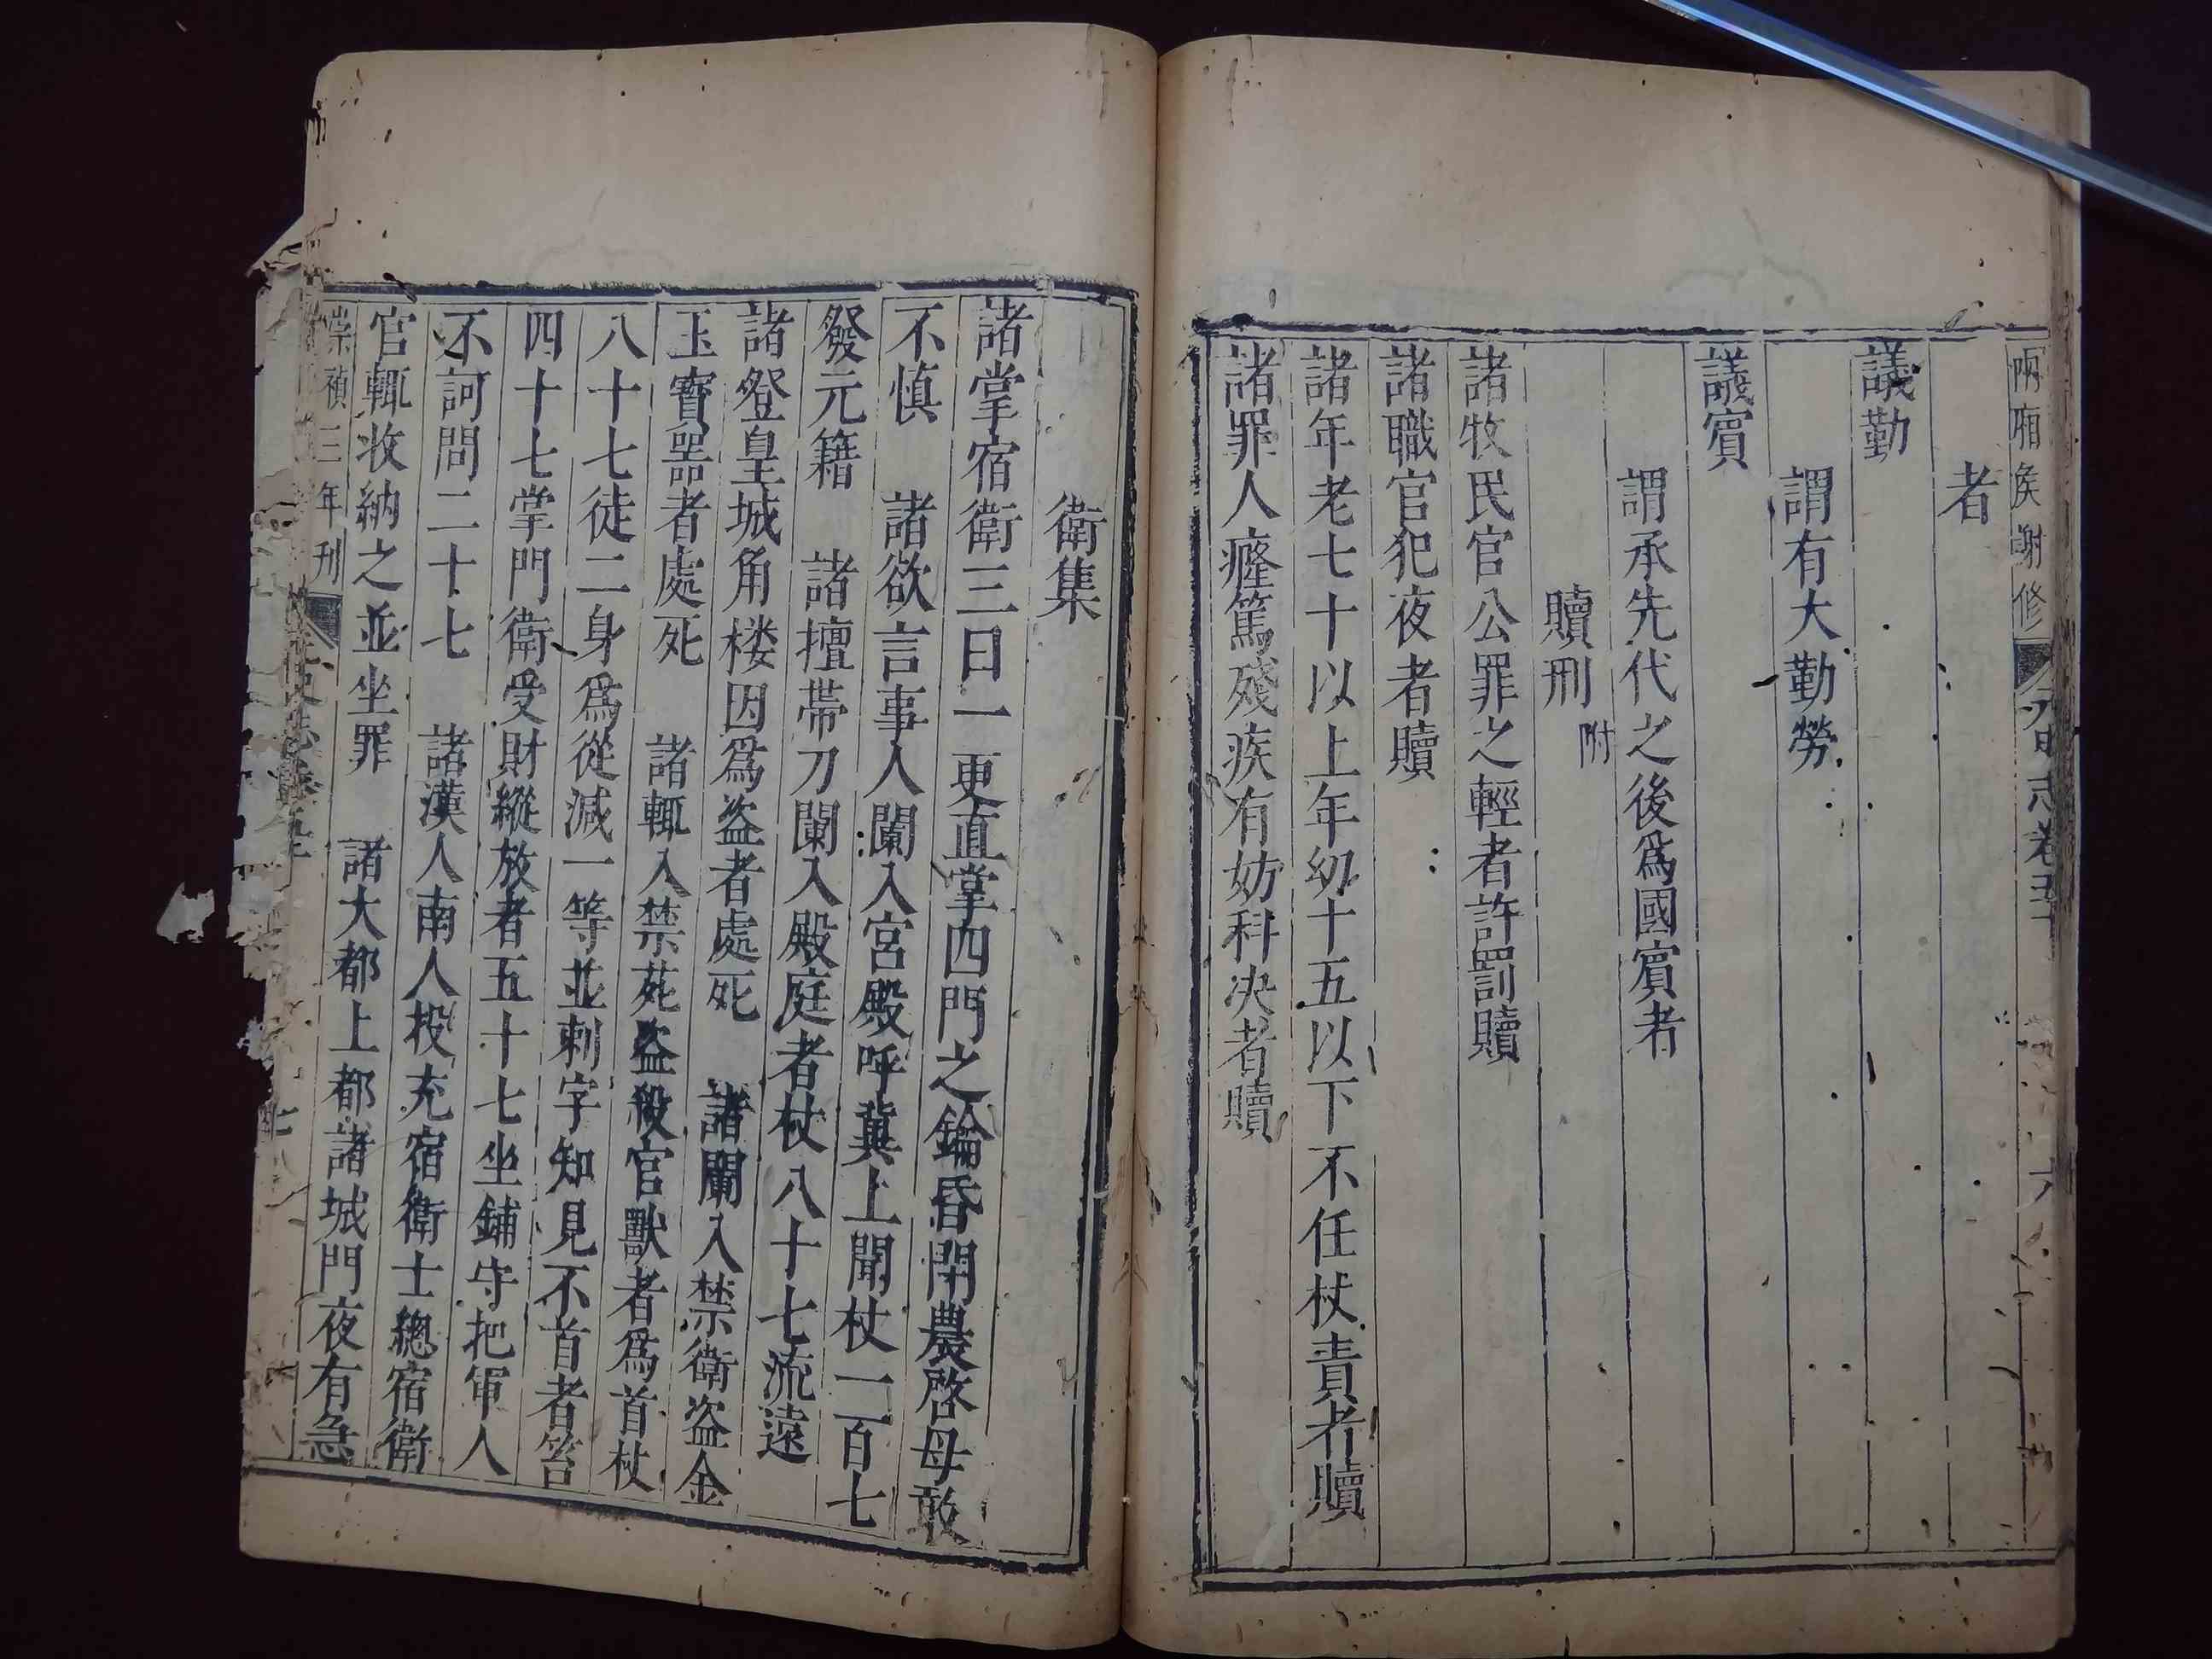 兩廂矦謝修
元史志卷五十
六
者
議勤
謂有大勤勞
議賓
謂承先代之後爲國賓者
贖刑附
諸牧民官公罪之輕者許罰贖
諸職官犯夜者贖
諸年老七十以上年幼十五以下不任杖責者贖
諸罪人癃篤殘疾有妨科决者贖
衛集
諸掌宿衛三日一更直掌四門之鑰昏閉農啓母敢
不慎　諸欲言事人闌入宮殿呼冀上聞杖一百七
發元籍　諸擅帶刀闌入殿庭者杖八十七流遠
諸登皇城角楼因爲盗者處死　諸闌入禁衛盗金
玉寶噐者處死　諸輒入禁苑盗殺官獸者爲首杖
八十七徒二身爲從減一等並刺字知見不首者笞
四十七掌門衛受財縱放者五十七坐鋪守把軍人
不訶問二十七　諸漢人南人投充宿衛士總宿衛
官輒收納之並坐罪　諸大都上都諸城門夜有急
崇禎三年刋